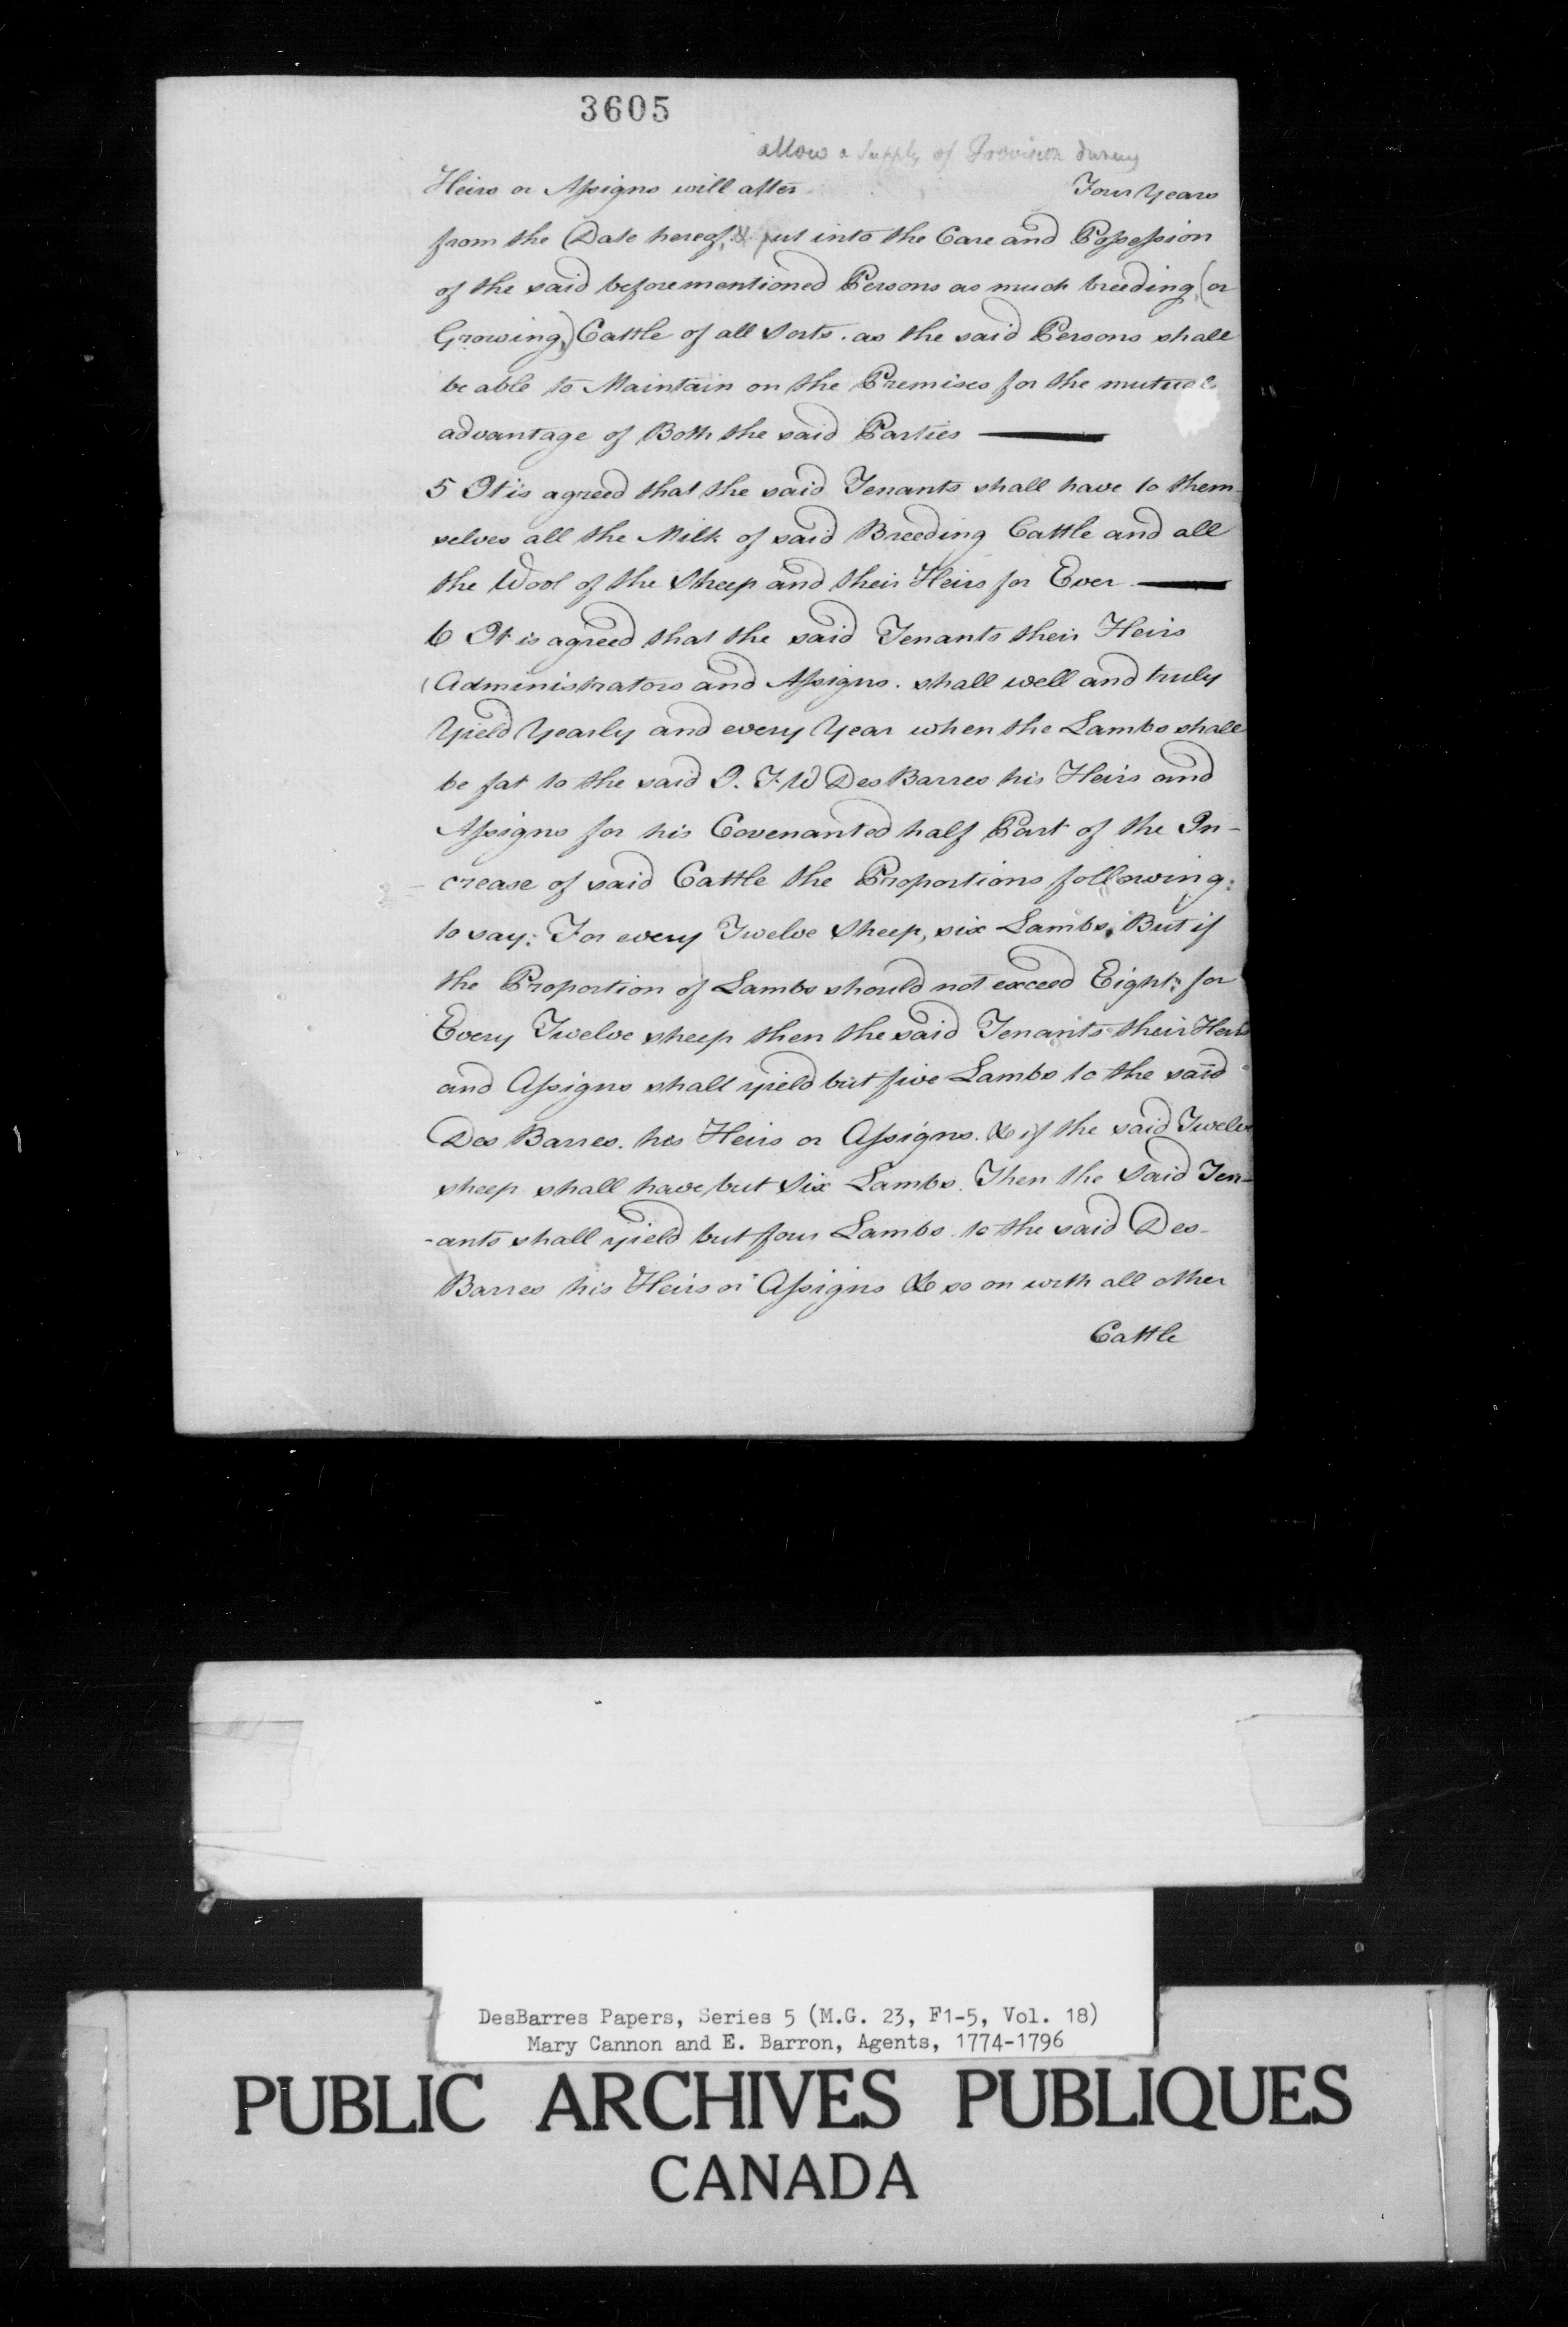 3605
allow a Supply of Provision during
Heirs or Assigns will after Four Years
from the Date hereof, & put into the Care and Possession
of the said beforementioned Persons as much breeding (or
Growing) Cattle of all Sorts. as the said Persons shall
be able to Maintain on the Premises for the mutual
advantage of Both the said Parties
5 It is agreed that the said Tenants shall have to them-
selves all the Milk of said Breeding Cattle and all
the Wool of the Sheep and their Heirs for Ever
6 It is agreed that the said Tenants their Heirs
Administrators and Assigns. shall well and truly
Yield Yearly and every Year when the Lambs shall
be fat to the said J. F. W Des Barres his Heirs and
Assigns for his Covenanted half Part of the In-
crease of said Cattle the Proportions following:
to say: For every Twelve Sheep, six Lambs. But if
the Proportion of Lambs should not exceed Eight: for
Every Twelve sheep then the said Tenants their Heirs
and Assigns shall yield but five Lambs to the said
Des Barres. his Heirs or Assigns. & if the said Twelve
sheep shall have but Six Lambs. Then the Said Ten-
-ants shall yield but four Lambs. to the said Des-
Barres his Heirs or Assigns & so on with all other
Cattle
DesBarres Papers, Series 5 (M.G. 23, F1-5, Vol. 18)
Mary Cannon and E. Barron, Agents, 1774-1796
PUBLIC ARCHIVES PUBLIQUES
CANADA